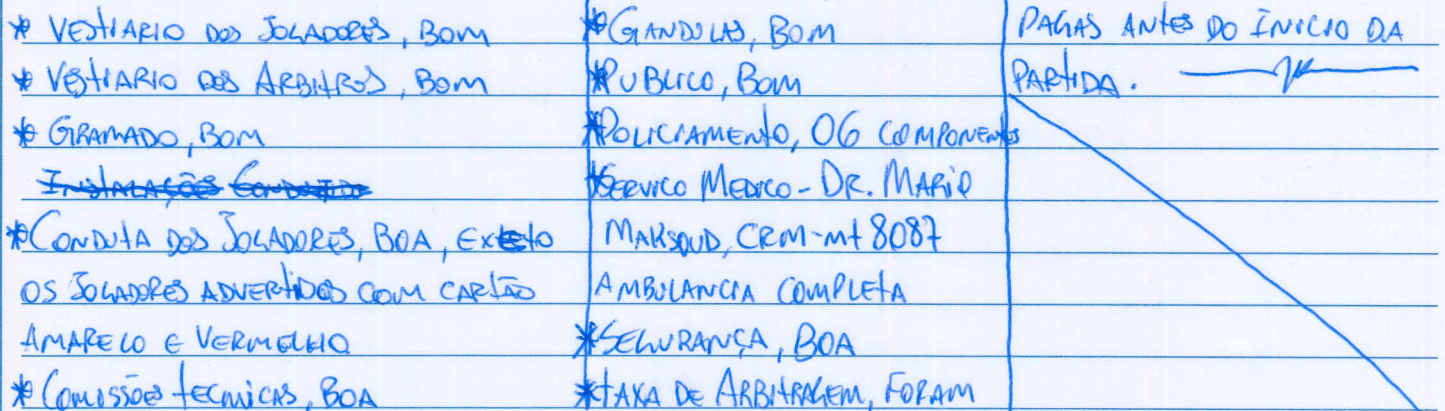 * VESTIARIO DOS JOGADORES, BOM
* VESTIARIO DOS ARBITROS, BOM
* GRAMADO, BOM
INSTALAÇÕES
* CONDUTA DOS JOGADORES, BOA, EXETO
OS JOGADORES ADVERTIDOS COM CARTÃO
AMARELO E VERMELHO
* COMISSÕES TECNICAS, BOA
* GANDULAS, BOM
* PUBLICO, BOM
* POLICIAMENTO, 06 COMPONENTES
* SERVICO MEDICO - DR. MARIO
MAKSOUD, CRM-MT 8087
AMBULANCIA COMPLETA
* SEGURANÇA, BOA
* TAXA DE ARBITRAGEM, FORAM
PAGAS ANTES DO INICIO DA
PARTIDA.